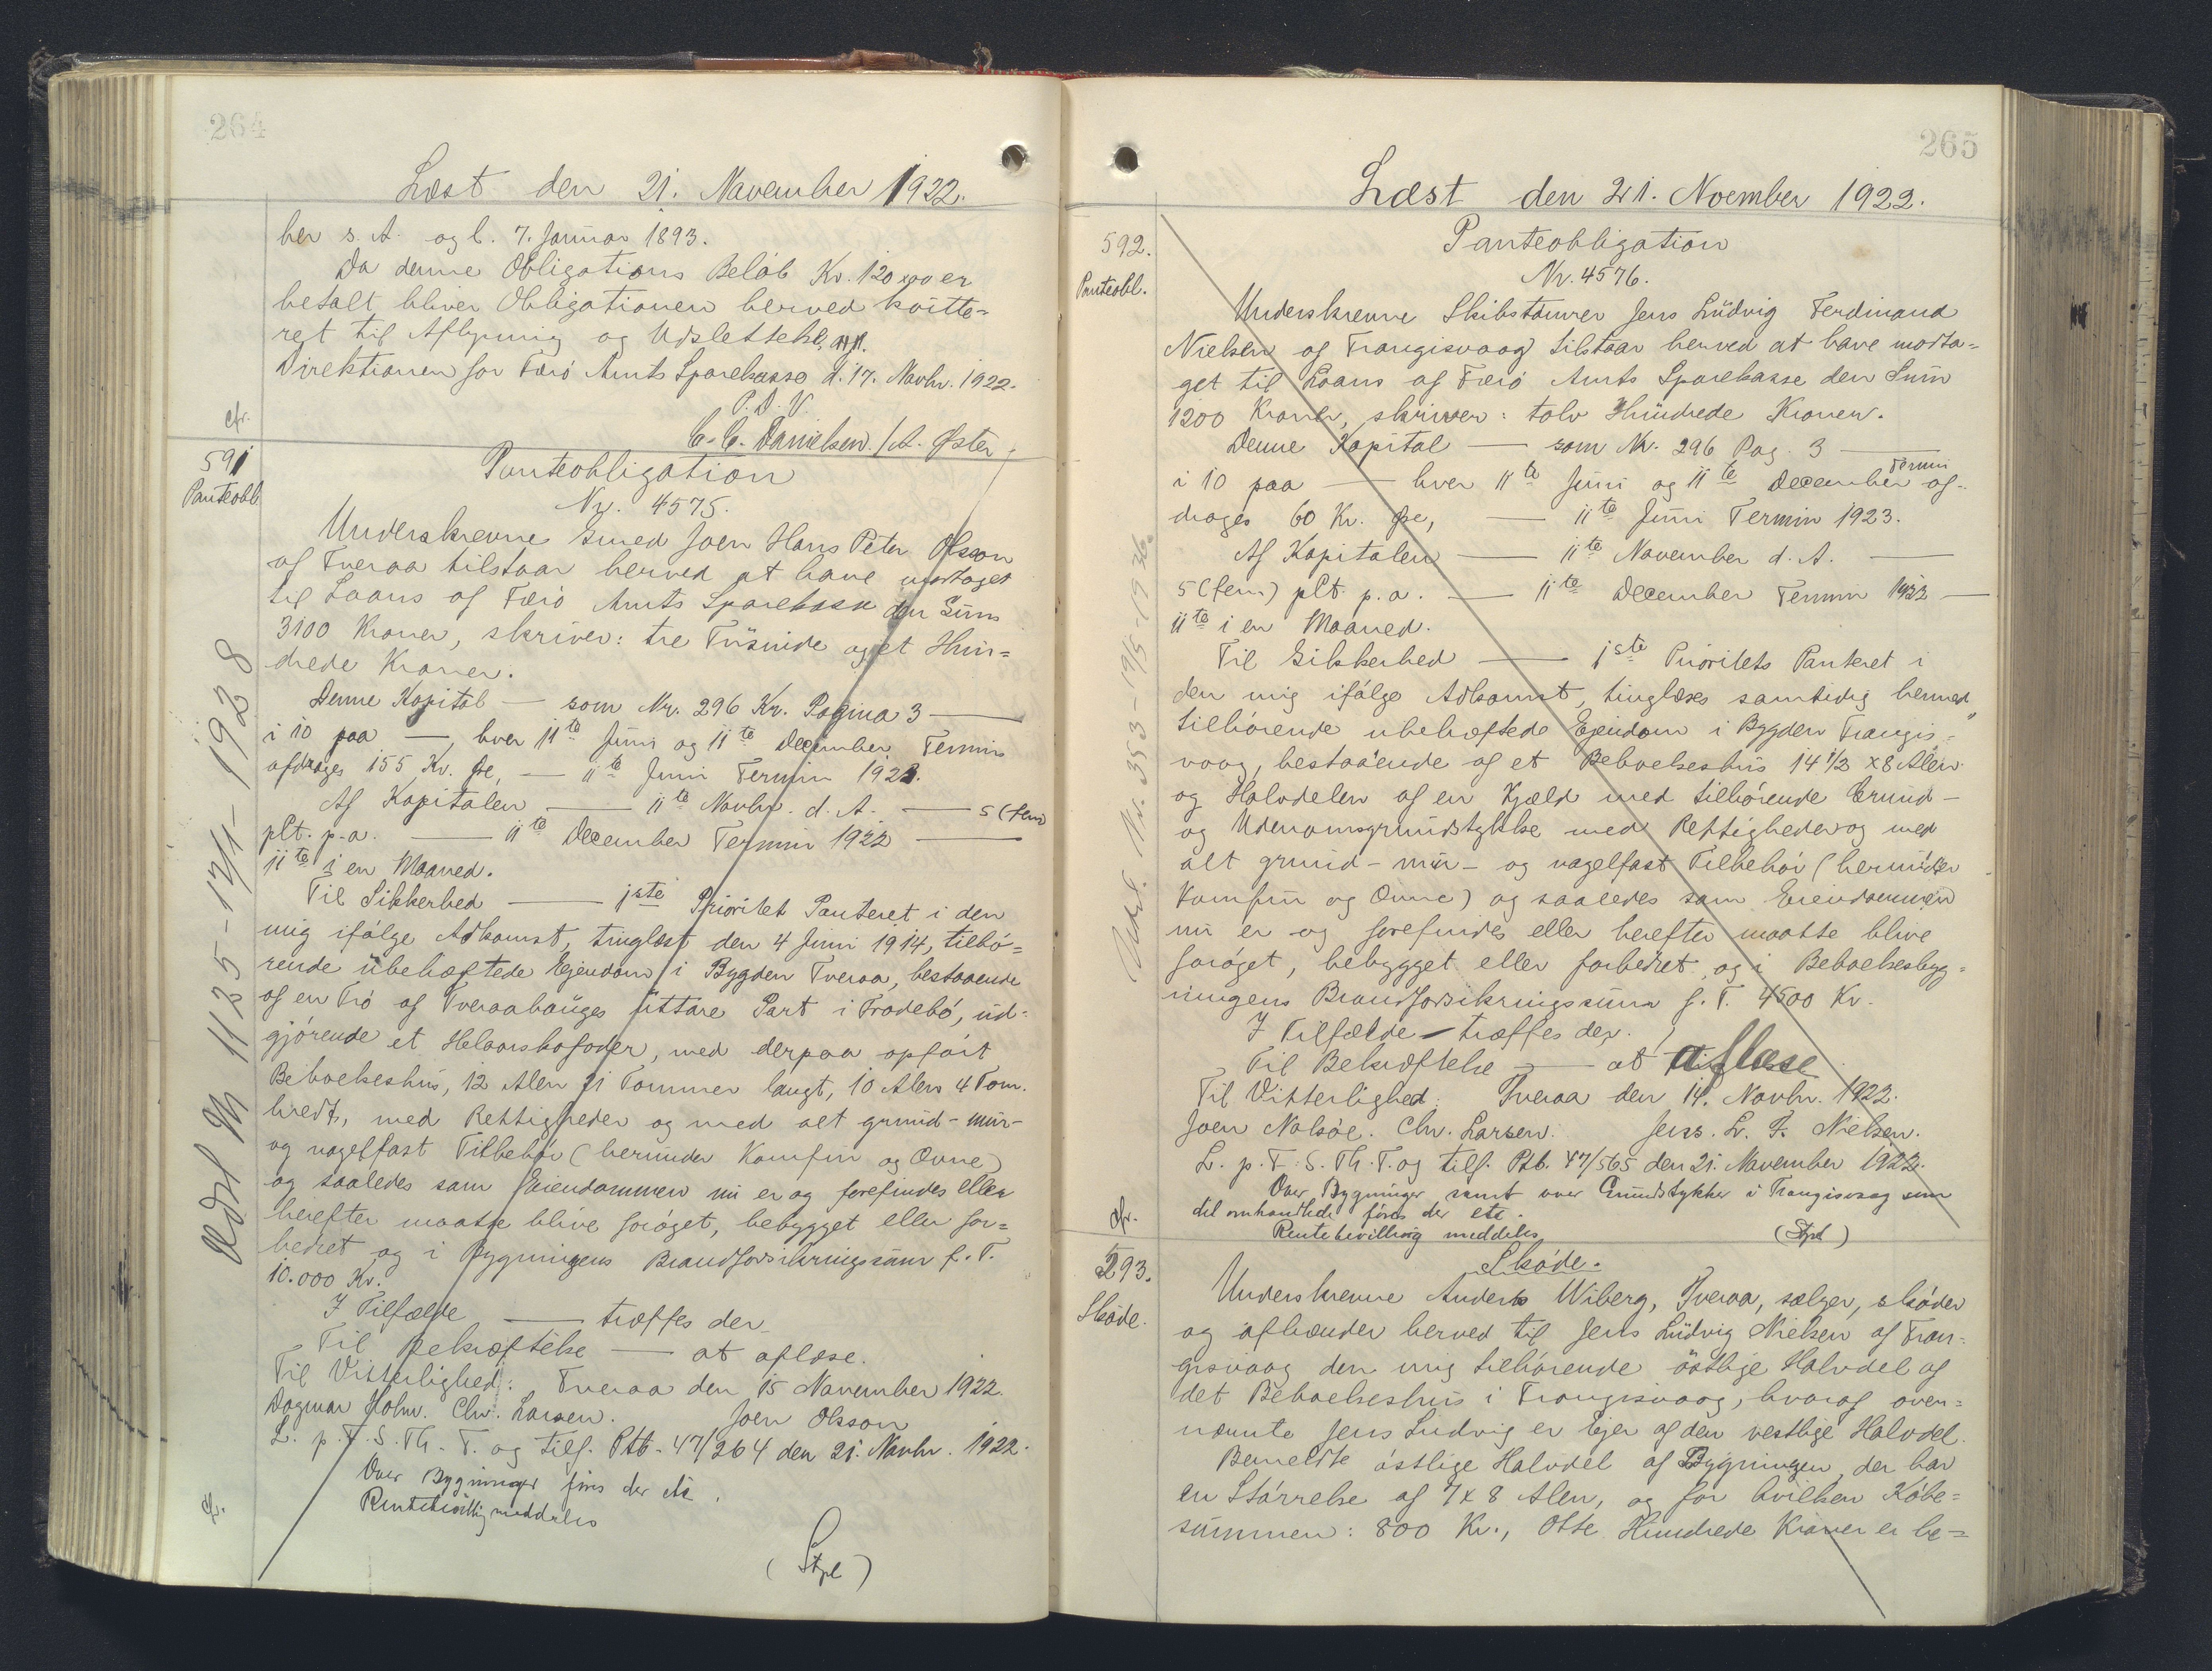 264
Læst den 21. November 1922.
ber s. A. og l. 7. Januar 1893.
Da denne Obligations Beløb Kr. 120 x00 er
betalt bliver Obligationen herved kvitte=
ret til Aflysning og Udslettelse
Direktionen for Færø Amts Sparekasse d. 17. Novbr. 1922.
P. D. V.
C. C. Danielsen. / A. Øster
cfr.
591
Panteobl.
Panteobligation
Nr. 4575.
Underskrevne Smed Joen Hans Peter Olsson
af Tveraa tilstaar herved at have modtaget
til Laans af Færø Amts Sparekasse den Sum
3100 Kroner, skriver: tre Tusinde og et Hun=
drede Kroner.
Denne Kapital — som Nr. 296 Kr. Pagina 3 —
i 10 paa —, hver 11te Juni og 11te December Termin
afdrages 155 Kr. Øre, — 11te Juni Termin 1923.
Af Kapitalen — 11te Novbr. d. A. — 5 (fem)
plt. p.a. — 11te December Termin 1922 —
11te i en Maaned.
Til Sikkerhed — 1ste Prioritet Panteret i den
mig ifølge Adkomst, tinglæst den 4 Juni 1914, tilhø=
rende ubehæftede Ejendom i Bygden Tveraa, bestaaende
af en Trø af Tveraahauges uttare Part i Trodebø, ud=
gjørende et Helaarskofoder, med derpaa opført
Beboelseshus, 12 Alen 21 Tommer langt, 10 Alen 4 Tom.
bredt, med Rettigheder og med alt grund- mur-
og nagelfast Tilbehør (herunder Komfur og Ovne)
og saaledes som Eiendommen nu er og forefindes eller
herefter maatte blive forøget, bebygget eller for=
bedret og i Bygningens Brandforsikringssum f. T.
10.000 Kr.
I Tilfælde — træffes der
Til Bekræftelse — at aflæse.
Til Vitterlighed: Tveraa den 15 November 1922.
Dagmar Holm. Chr. Larsen. Joen Olsson
L. p. F. S. Th. T. og tilf. Ptb. 47/264 den 21. Novbr. 1922.
Over Bygninger føres der etc.
Rentebevilling meddeles
(Stpl)
cfr.
Udsl № 1125 - 17/1 - 1928
265
Læst den 21. Noember 1922.
592.
Panteobl.
Panteobligation
Nr. 4576.
Underskrevne Skibstømrer Jens Ludvig Ferdinand
Nielsen af Trangisvaag tilstaar herved at have modta=
get til Laans af Færø Amts Sparekasse den Sum
1200 Kroner, skriver: tolv Hundrede Kroner.
Denne Kapital — som Nr. 296 Pag. 3 —
Termin
i 10 paa — hver 11te Juni og 11te December af=
drages 60 Kr. Øre, — 11te Juni Termin 1923.
Af Kapitalen — 11te November d. A. —
5 (fem) plt. p. a. — 11te December Termin 1922 —
11te i en Maaned.
Til Sikkerhed — 1ste Prioritets Panteret i
den mig ifølge Adkomst, tinglæses samtidig hermed
tilhørende ubehæftede Ejendom i Bygden Trangis=
vaag, bestaaende af et Beboelseshus 14 1/2 x 8 Alen
og Halvdelen af en Kjæld med tilhørende Grund-
og Udenomsgrundstykke med Rettigheder og med
alt grund- mur- og nagelfast Tilbehør (herunder
Komfur og Ovne) og saaledes som Eiendommen
nu er og forefindes eller herefter maatte blive
forøget, bebygget eller forbedret og i Beboelsesbyg=
ningens Brandforsikringssum f. T. 4500 Kr.
I Tilfælde — træffes der.
Til Bekræftelse — at aflæse
Til Vitterlighed: Tveraa den 14. Novbr. 1922.
Joen Nolsøe. Chr. Larsen. Jens. L. F. Nielsen.
L. p. F. S. Th. T. og tilf. Ptb. 47/565 den 21. November 1922.
Over Bygninger samt over Grundstykker i Trangisvaag som
del omhandlede føres der etc.
Rentebevilling meddeles (Stpl)
cfr.
Udsl. Nr. 353 - 19/5 - 1936.
593.
Skøde.
Skøde.
Underskrevne Anders Wiberg, Tveraa, sælger, skøder
og afhænder herved til Jens Ludvig Nielsen af Tran=
gisvaag den mig tilhørende østlige Halvdel af
det Beboelseshus i Trangisvaag, hvoraf oven=
nævnte Jens Ludvig er Ejer af den vestlige Halvdel.
Bemeldte østlige Halvdel af Bygningen der har
en Størrelse af 7 x 8 Alen, og for hvilken Købe=
summen: 800 Kr., Otte Hundrede Kroner er be=